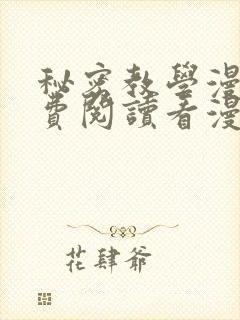 秘密教學漫
費閱讀看漫
花肆爺